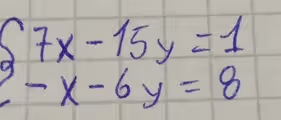 { 7x - 15y = 1
- x - 6y = 8